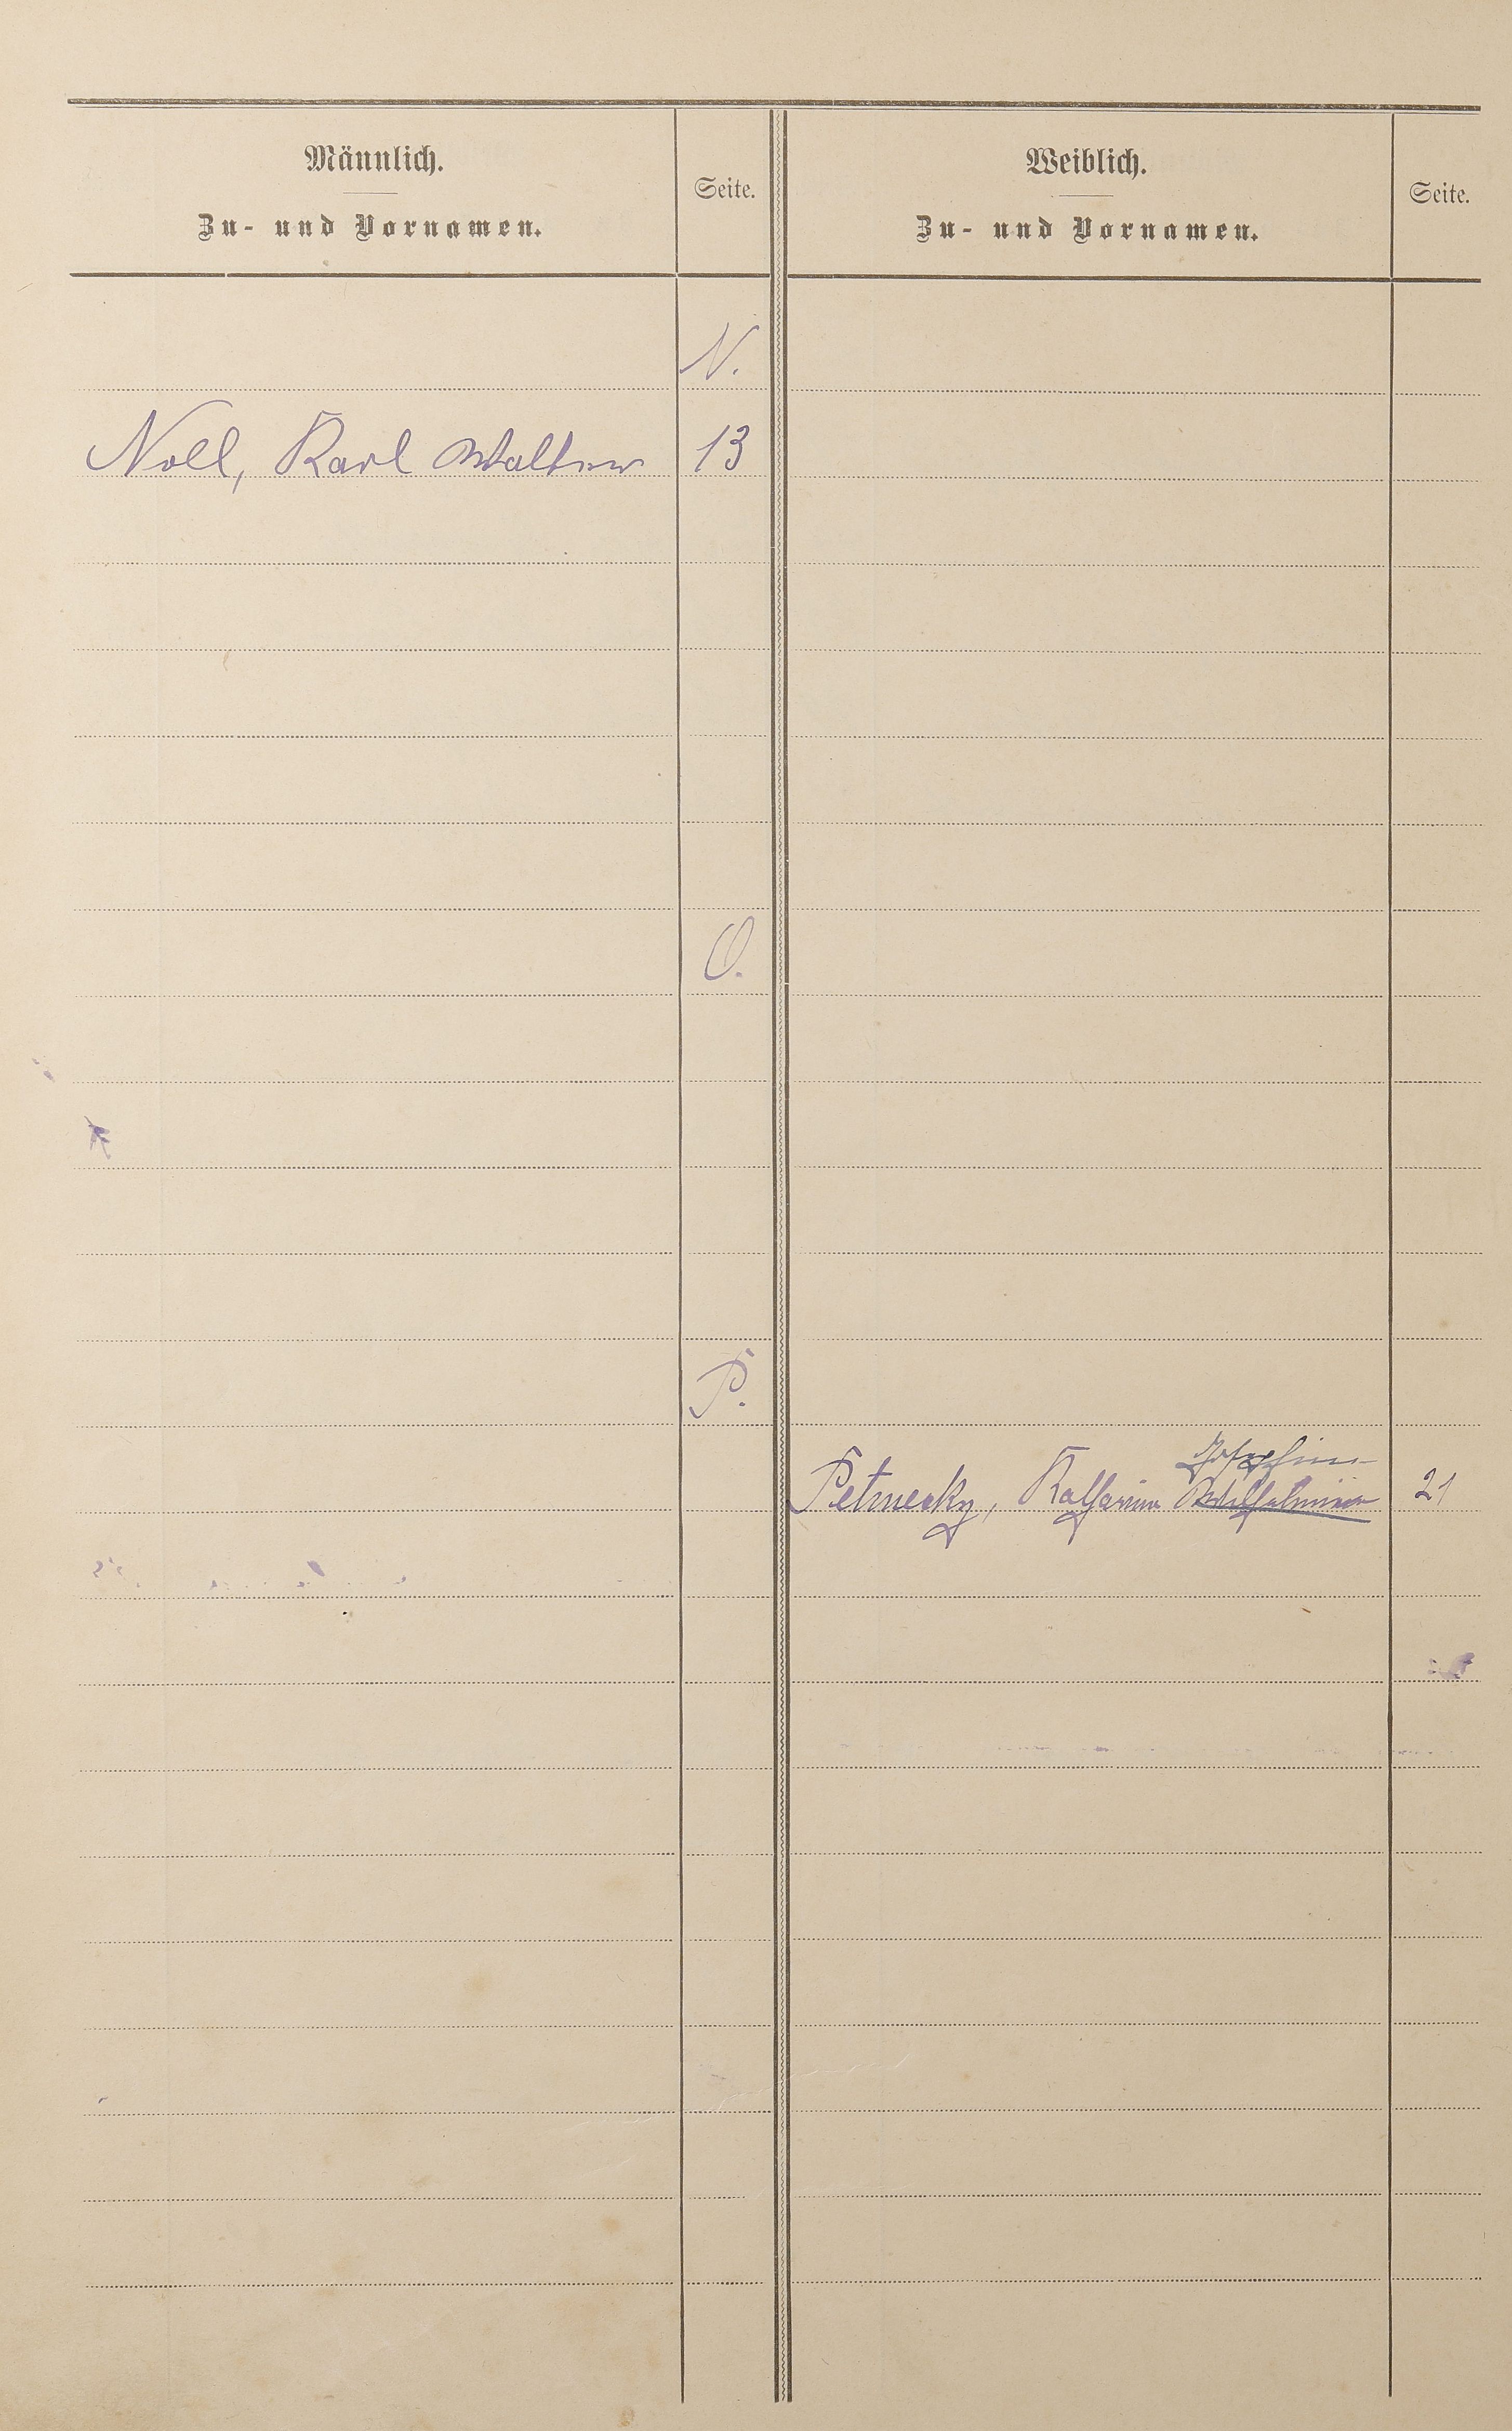 Männlich.
Zu- und Vornamen.
Seite.
Weiblich.
Zu- und Vornamen.
Seite.
N.
Noll, Karl Walther 13
O.
P.
Josefine
Petmecky, Katharina Wilhelmine 21